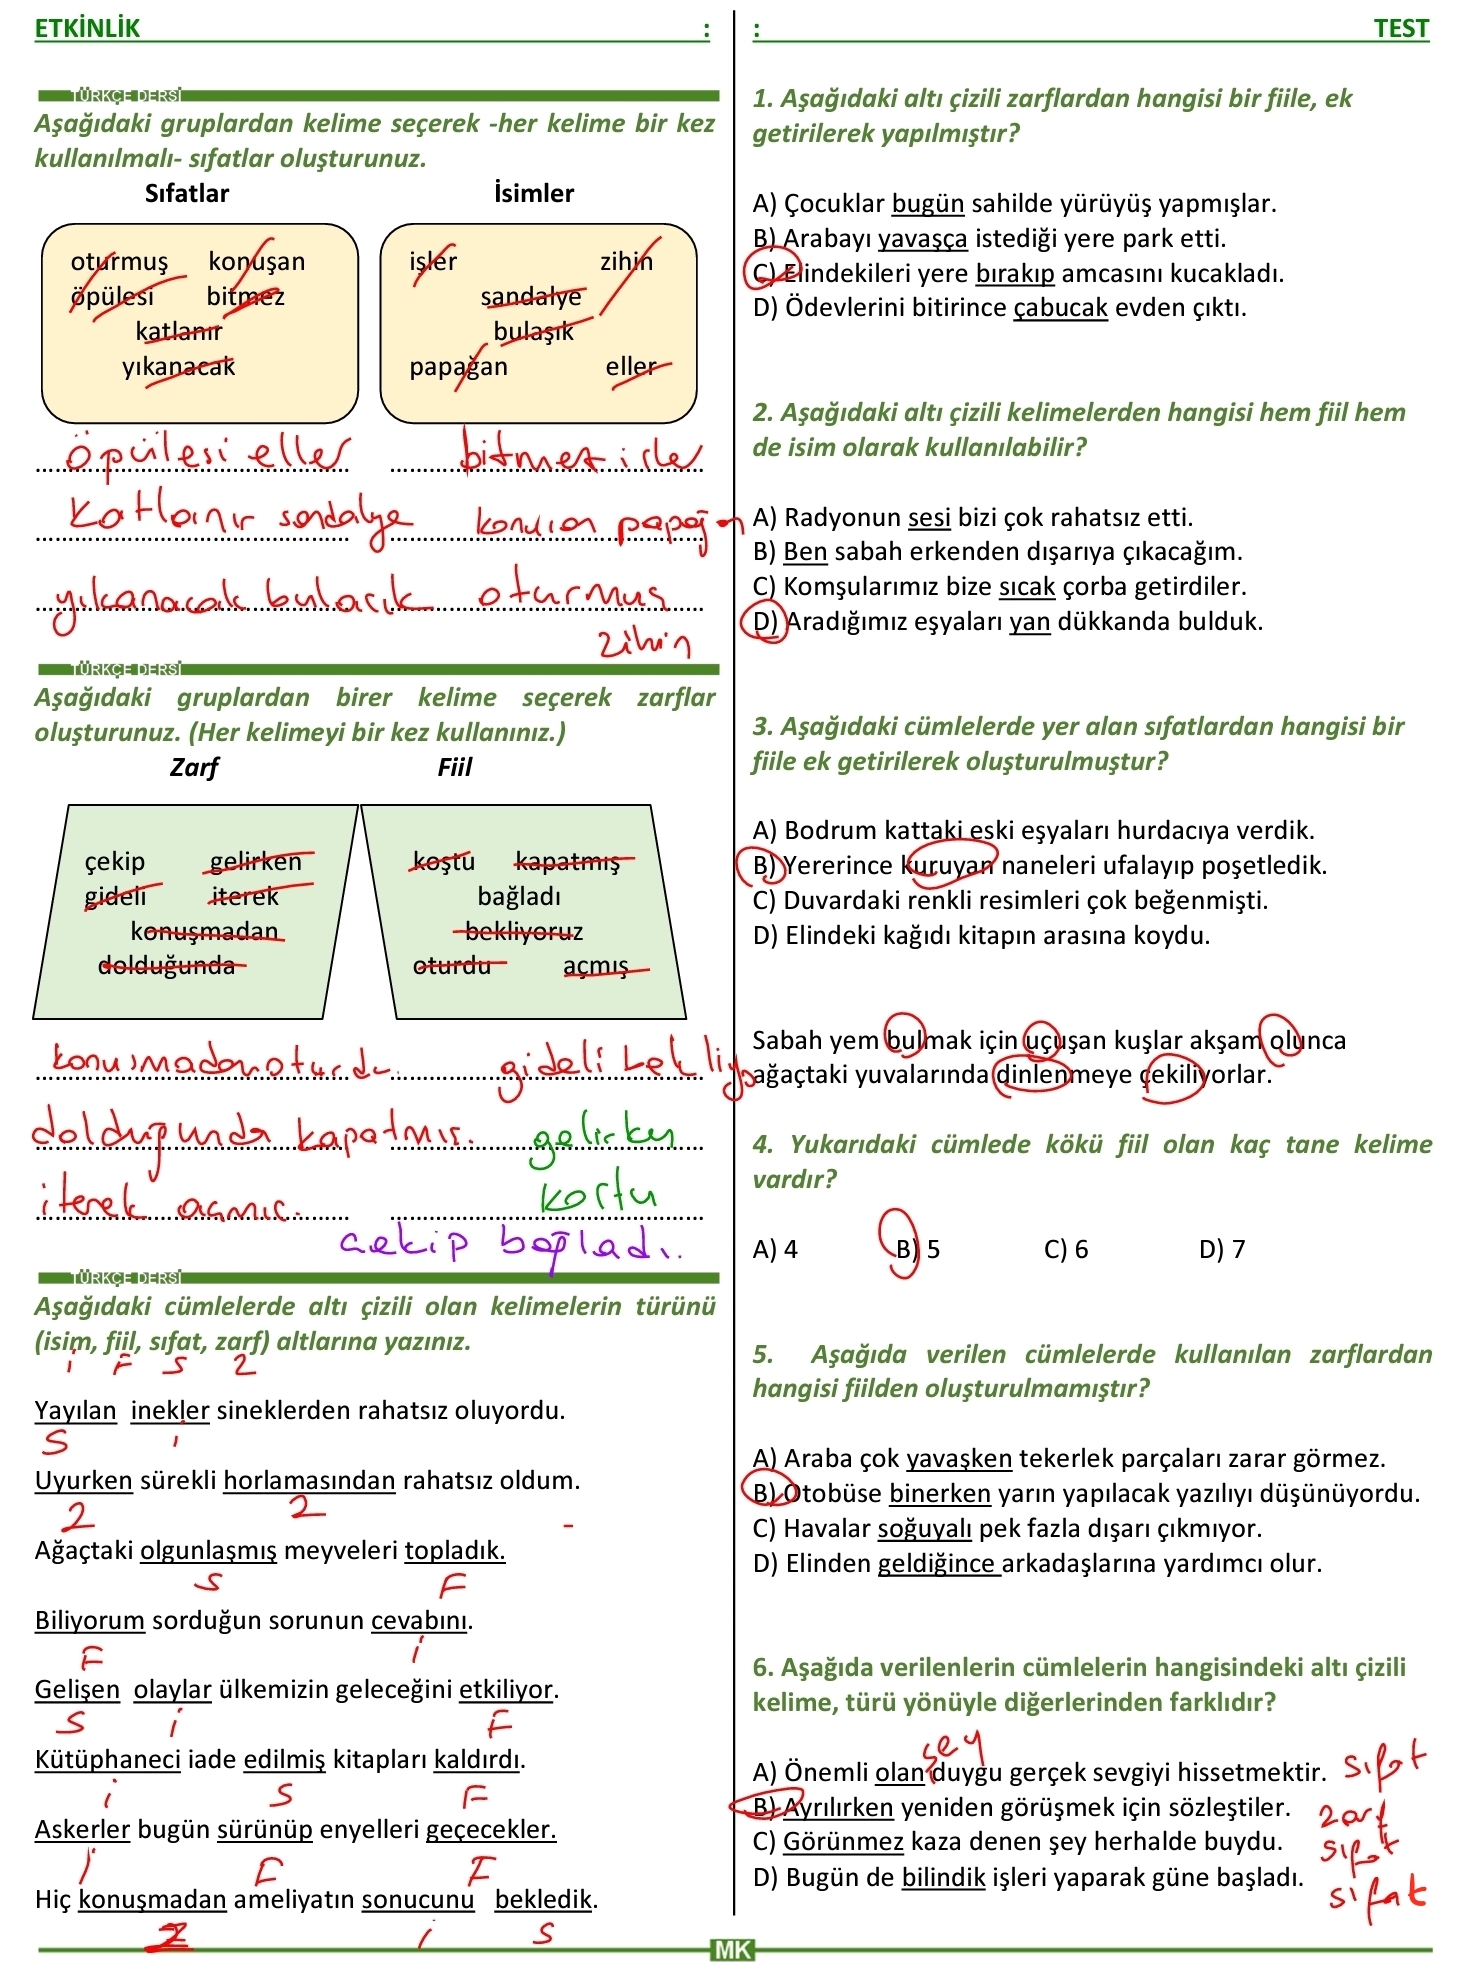 ETKİNLİK :
TÜRKÇE DERSİ
Aşağıdaki gruplardan kelime seçerek -her kelime bir kez
kullanılmalı- sıfatlar oluşturunuz.
Sıfatlar İsimler
oturmuş konuşan
öpülesi bitmez
katlanır
yıkanacak
işler zihin
sandalye
bulaşık
papağan eller
öpülesi eller bitmez işler
Katlanır sandalye konuşan papağan
yıkanacak bulaşık oturmuş
zihin
TÜRKÇE DERSİ
Aşağıdaki gruplardan birer kelime seçerek zarflar
oluşturunuz. (Her kelimeyi bir kez kullanınız.)
Zarf Fiil
çekip gelirken
gideli iterek
konuşmadan
dolduğunda
koştu kapatmış
bağladı
bekliyoruz
oturdu açmış
konuşmadan oturdu. gideli bekliyo
dolduğunda kapatmış. gelirken
iterek açmış. koştu
çekip bağladı..
TÜRKÇE DERSİ
Aşağıdaki cümlelerde altı çizili olan kelimelerin türünü
(isim, fiil, sıfat, zarf) altlarına yazınız.
i F S Z
Yayılan inekler sineklerden rahatsız oluyordu.
S i
Uyurken sürekli horlamasından rahatsız oldum.
Z Z
Ağaçtaki olgunlaşmış meyveleri topladık.
S F
Biliyorum sorduğun sorunun cevabını.
F i
Gelişen olaylar ülkemizin geleceğini etkiliyor.
S i F
Kütüphaneci iade edilmiş kitapları kaldırdı.
i S F
Askerler bugün sürünüp enyelleri geçecekler.
i F F
Hiç konuşmadan ameliyatın sonucunu bekledik.
Z i S
: TEST
1. Aşağıdaki altı çizili zarflardan hangisi bir fiile, ek
getirilerek yapılmıştır?
A) Çocuklar bugün sahilde yürüyüş yapmışlar.
B) Arabayı yavaşça istediği yere park etti.
C) Elindekileri yere bırakıp amcasını kucakladı.
D) Ödevlerini bitirince çabucak evden çıktı.
2. Aşağıdaki altı çizili kelimelerden hangisi hem fiil hem
de isim olarak kullanılabilir?
A) Radyonun sesi bizi çok rahatsız etti.
B) Ben sabah erkenden dışarıya çıkacağım.
C) Komşularımız bize sıcak çorba getirdiler.
D) Aradığımız eşyaları yan dükkanda bulduk.
3. Aşağıdaki cümlelerde yer alan sıfatlardan hangisi bir
fiile ek getirilerek oluşturulmuştur?
A) Bodrum kattaki eski eşyaları hurdacıya verdik.
B) Yererince kuruyan naneleri ufalayıp poşetledik.
C) Duvardaki renkli resimleri çok beğenmişti.
D) Elindeki kağıdı kitapın arasına koydu.
Sabah yem bulmak için uçuşan kuşlar akşam olunca
ağaçtaki yuvalarında dinlenmeye çekiliyorlar.
4. Yukarıdaki cümlede kökü fiil olan kaç tane kelime
vardır?
A) 4 B) 5 C) 6 D) 7
5. Aşağıda verilen cümlelerde kullanılan zarflardan
hangisi fiilden oluşturulmamıştır?
A) Araba çok yavaşken tekerlek parçaları zarar görmez.
B) Otobüse binerken yarın yapılacak yazılıyı düşünüyordu.
C) Havalar soğuyalı pek fazla dışarı çıkmıyor.
D) Elinden geldiğince arkadaşlarına yardımcı olur.
6. Aşağıda verilenlerin cümlelerin hangisindeki altı çizili
kelime, türü yönüyle diğerlerinden farklıdır?
şey
A) Önemli olan duygu gerçek sevgiyi hissetmektir. sıfat
B) Ayrılırken yeniden görüşmek için sözleştiler. zarf
C) Görünmez kaza denen şey herhalde buydu. sıfat
D) Bugün de bilindik işleri yaparak güne başladı. sıfat
MK